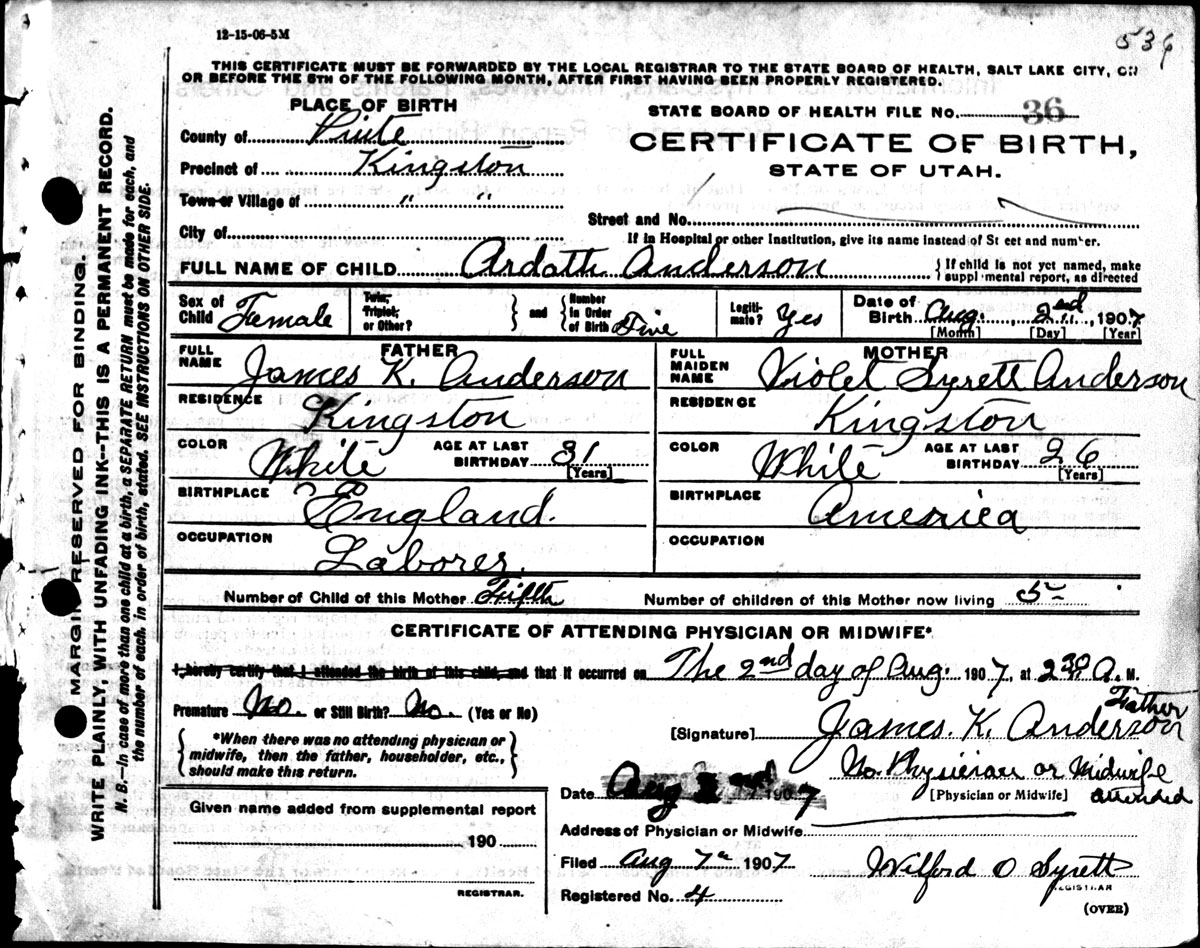 12-15-06-5M
536
THIS CERTIFICATE MUST BE FORWARDED BY THE LOCAL REGISTRAR TO THE STATE BOARD OF HEALTH, SALT LAKE CITY, ON
OR BEFORE THE 5TH OF THE FOLLOWING MONTH, AFTER FIRST HAVING BEEN PROPERLY REGISTERED.
PLACE OF BIRTH
County of Piute
Precinct of Kingston
Town or Village of " "
City of
STATE BOARD OF HEALTH FILE NO. 36
CERTIFICATE OF BIRTH,
STATE OF UTAH.
Street and No.
If in Hospital or other Institution, give its name instead of Street and number.
FULL NAME OF CHILD Ardath Anderson
If child is not yet named, make
supplemental report, as directed
Sex of Child Female
Twin, Triplet, or Other?
and
Number in Order of Birth Five
Legitimate? Yes
Date of Birth Aug. 2nd, 1907
[Month] [Day] [Year]
FATHER
FULL NAME James K. Anderson
RESIDENCE Kingston
COLOR White AGE AT LAST BIRTHDAY 31 [Years]
BIRTHPLACE England.
OCCUPATION Laborer.
MOTHER
FULL MAIDEN NAME Violet Syrett Anderson
RESIDENCE Kingston
COLOR White AGE AT LAST BIRTHDAY 26 [Years]
BIRTHPLACE America
OCCUPATION
Number of Child of this Mother Fifth Number of children of this Mother now living 5-
CERTIFICATE OF ATTENDING PHYSICIAN OR MIDWIFE*
I hereby certify that I attended the birth of this child, and that it occurred on The 2nd day of Aug. 1907, at 2 30 A. M.
Premature No. or Still Birth? No. (Yes or No)
*When there was no attending physician or
midwife, then the father, householder, etc.,
should make this return.
Father
[Signature] James. K. Anderson
No. Physician or Midwife
[Physician or Midwife] attended
Date Aug 1907
Given name added from supplemental report
190
REGISTRAR.
Address of Physician or Midwife
Filed Aug 7th 1907 Wilford O Syrett
REGISTRAR
Registered No. 4
(OVER)
MARGIN RESERVED FOR BINDING.
WRITE PLAINLY, WITH UNFADING INK--THIS IS A PERMANENT RECORD.
N. B.--In case of more than one child at a birth, a SEPARATE RETURN must be made for each, and
the number of each, in order of birth, stated. SEE INSTRUCTIONS ON OTHER SIDE.